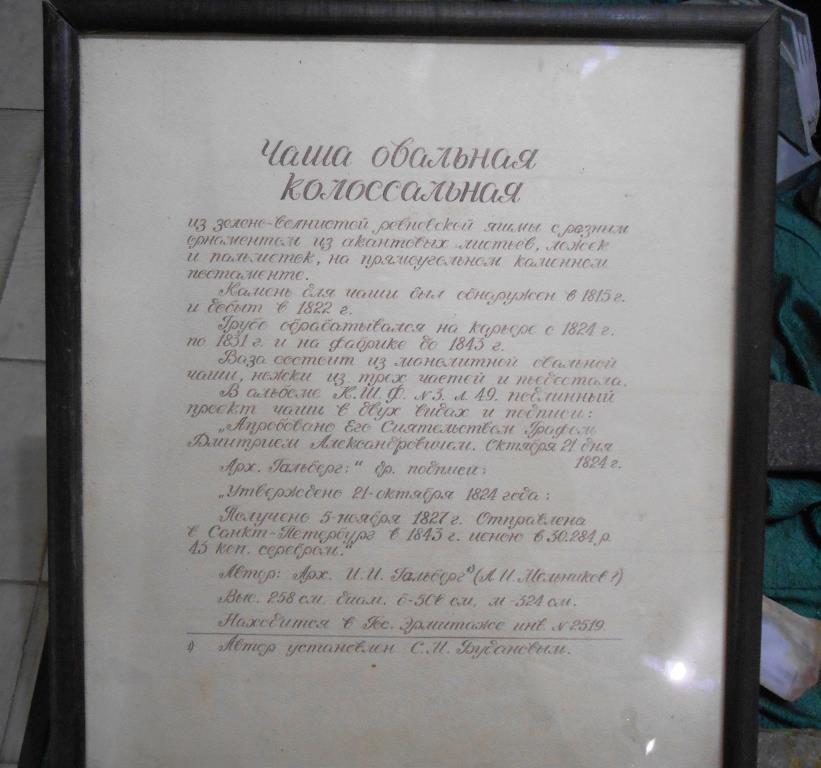 Чаша овальная
колоссальная
из зелено-волнистой ревновской яшмы с резным
орнаментом из акантовых листьев, ложек
и пальметок, на прямоугольном каменном
постаменте.
Камень для чаши был обнаружен в 1815 г.
и добыт в 1822 г.
Грубо обрабатывался на карьере с 1824 г.
по 1831 г. и на фабрике до 1843 г.
Ваза состоит из монолитной овальной
чаши, ножки из трех частей и пьедестала.
В альбоме К.Ш.Ф. №3. л. 49. подлинный
проект чаши в двух видах и подписи:
„Апробовано Его Сиятельством Графом
Дмитрием Александровичем. Октября 21 дня
1824 г.
Арх. Гальберг:" др. подписи:
„Утверждено 21-октября 1824 года:
Получено 5-ноября 1827 г. Отправлена
в Санкт-Петербург в 1843 г. ценою в 30.284 р.
43 коп. серебром."
Автор: Арх. И.И. Гальберг¹⁾ (А.И. Мельников?)
Выс. 258 см. диам. б-506 см, м-324 см.
Находится в Гос. Эрмитаже инв. №2519
¹⁾ Автор установлен С.М. Будановым.